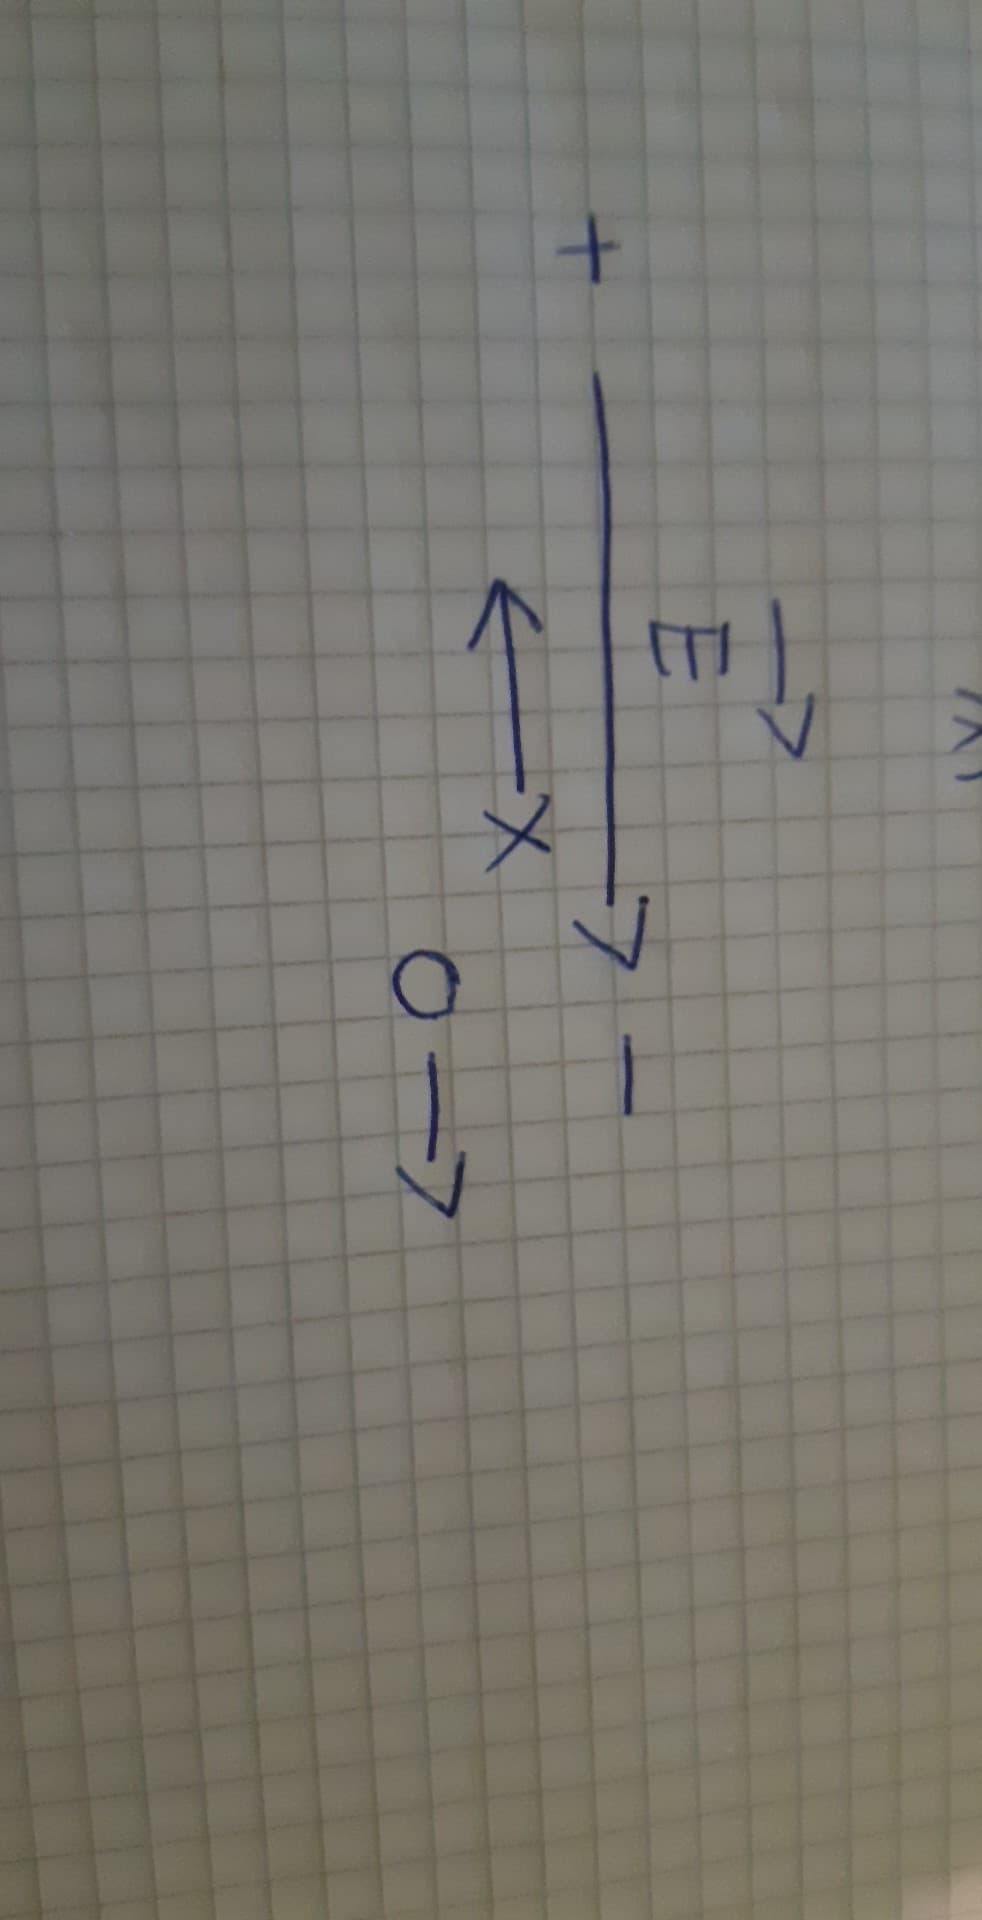 →
E
+ → −
← X
O →